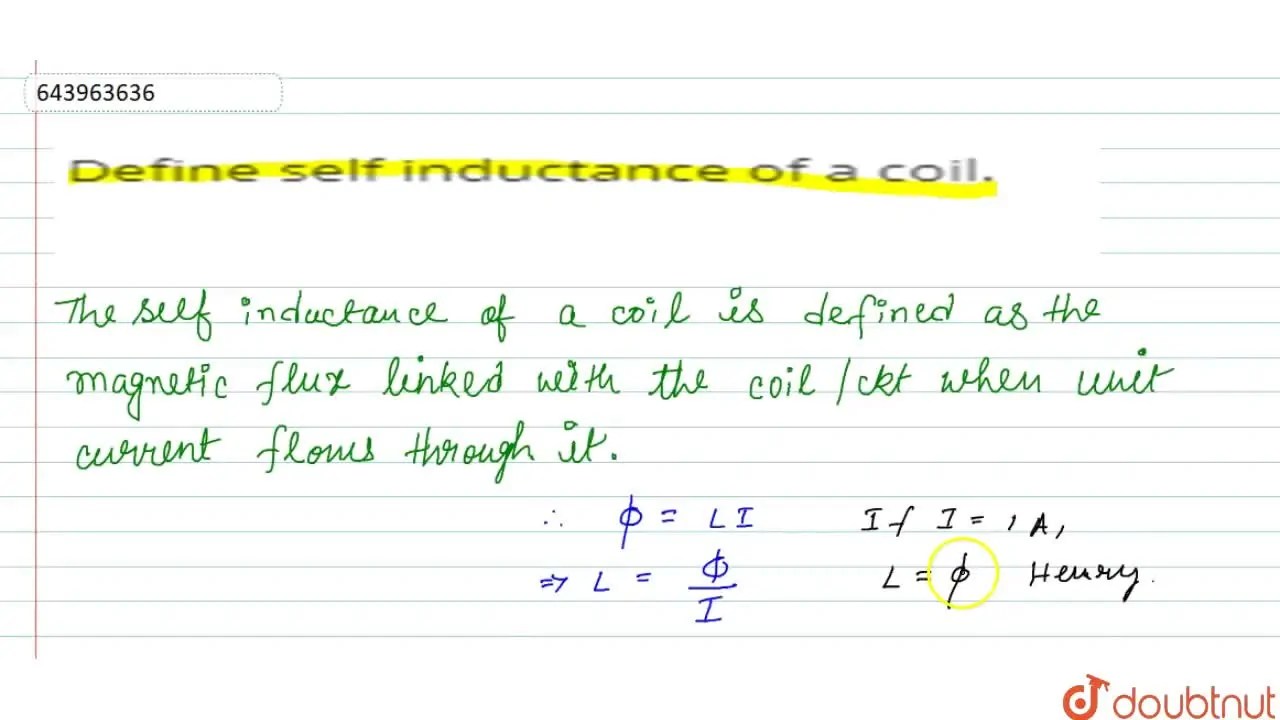 643963636
Define self inductance of a coil.
The self inductance of a coil is defined as the
magnetic flux linked with the coil/ckt when unit
current flows through it.
∴ ϕ = LI If I = 1 A,
⇒ L = ϕ/I L = ϕ Henry.
doubtnut